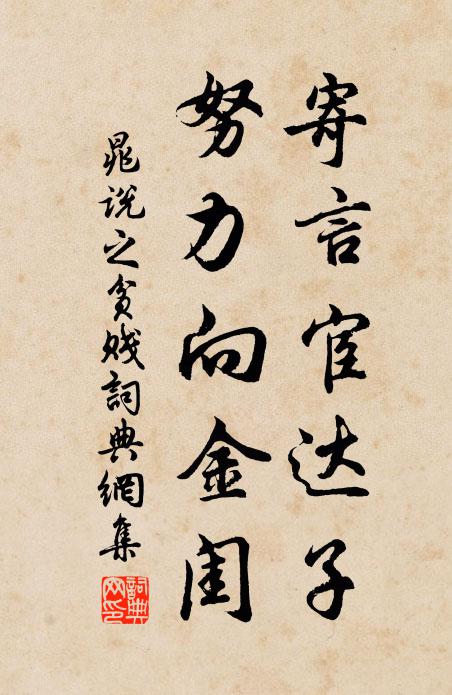 寄言宦达子
努力向金闺
晁说之贫贱詞典網集
詞典网印